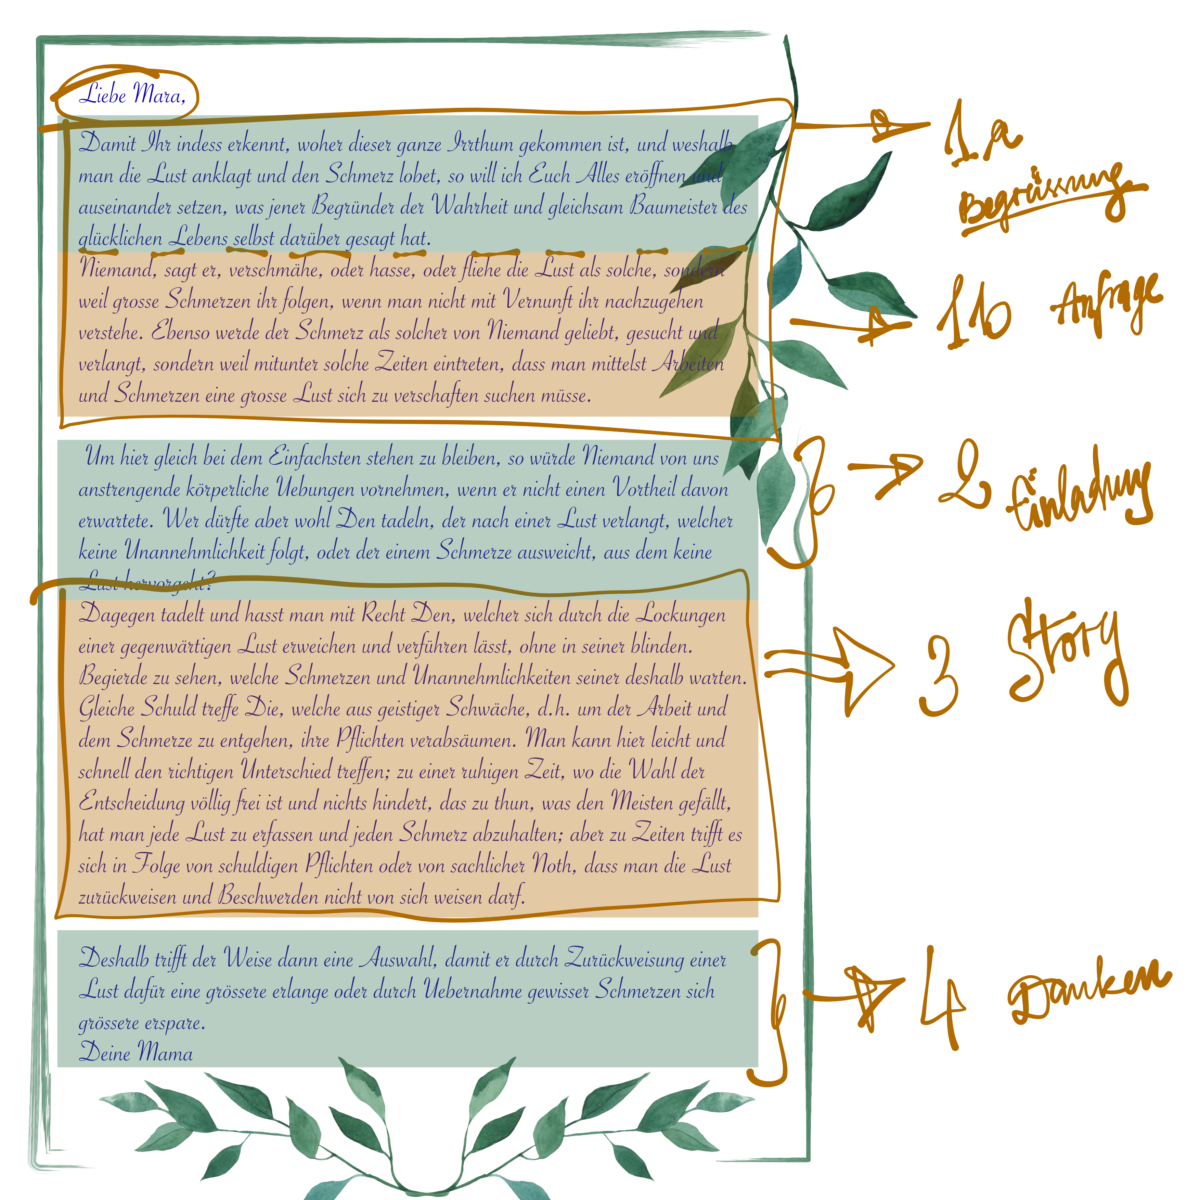 Liebe Mara,
Damit Ihr indess erkennt, woher dieser ganze Irrthum gekommen ist, und weshalb
man die Lust anklagt und den Schmerz lobet, so will ich Euch Alles eröffnen und
auseinander setzen, was jener Begründer der Wahrheit und gleichsam Baumeister des
glücklichen Lebens selbst darüber gesagt hat.
1a
Begrüssung
Niemand, sagt er, verschmähe, oder hasse, oder fliehe die Lust als solche, sondern
weil grosse Schmerzen ihr folgen, wenn man nicht mit Vernunft ihr nachzugehen
verstehe. Ebenso werde der Schmerz als solcher von Niemand geliebt, gesucht und
verlangt, sondern weil mitunter solche Zeiten eintreten, dass man mittelst Arbeiten
und Schmerzen eine grosse Lust sich zu verschaften suchen müsse.
1b Anfrage
Um hier gleich bei dem Einfachsten stehen zu bleiben, so würde Niemand von uns
anstrengende körperliche Uebungen vornehmen, wenn er nicht einen Vortheil davon
erwartete. Wer dürfte aber wohl Den tadeln, der nach einer Lust verlangt, welcher
keine Unannehmlichkeit folgt, oder der einem Schmerze ausweicht, aus dem keine
Lust hervorgeht?
2 Einladung
Dagegen tadelt und hasst man mit Recht Den, welcher sich durch die Lockungen
einer gegenwärtigen Lust erweichen und verführen lässt, ohne in seiner blinden.
Begierde zu sehen, welche Schmerzen und Unannehmlichkeiten seiner deshalb warten.
Gleiche Schuld treffe Die, welche aus geistiger Schwäche, d.h. um der Arbeit und
dem Schmerze zu entgehen, ihre Pflichten verabsäumen. Man kann hier leicht und
schnell den richtigen Unterschied treffen; zu einer ruhigen Zeit, wo die Wahl der
Entscheidung völlig frei ist und nichts hindert, das zu thun, was den Meisten gefällt,
hat man jede Lust zu erfassen und jeden Schmerz abzuhalten; aber zu Zeiten trifft es
sich in Folge von schuldigen Pflichten oder von sachlicher Noth, dass man die Lust
zurückweisen und Beschwerden nicht von sich weisen darf.
3 Story
Deshalb trifft der Weise dann eine Auswahl, damit er durch Zurückweisung einer
Lust dafür eine grössere erlange oder durch Uebernahme gewisser Schmerzen sich
grössere erspare.
Deine Mama
4 Danken